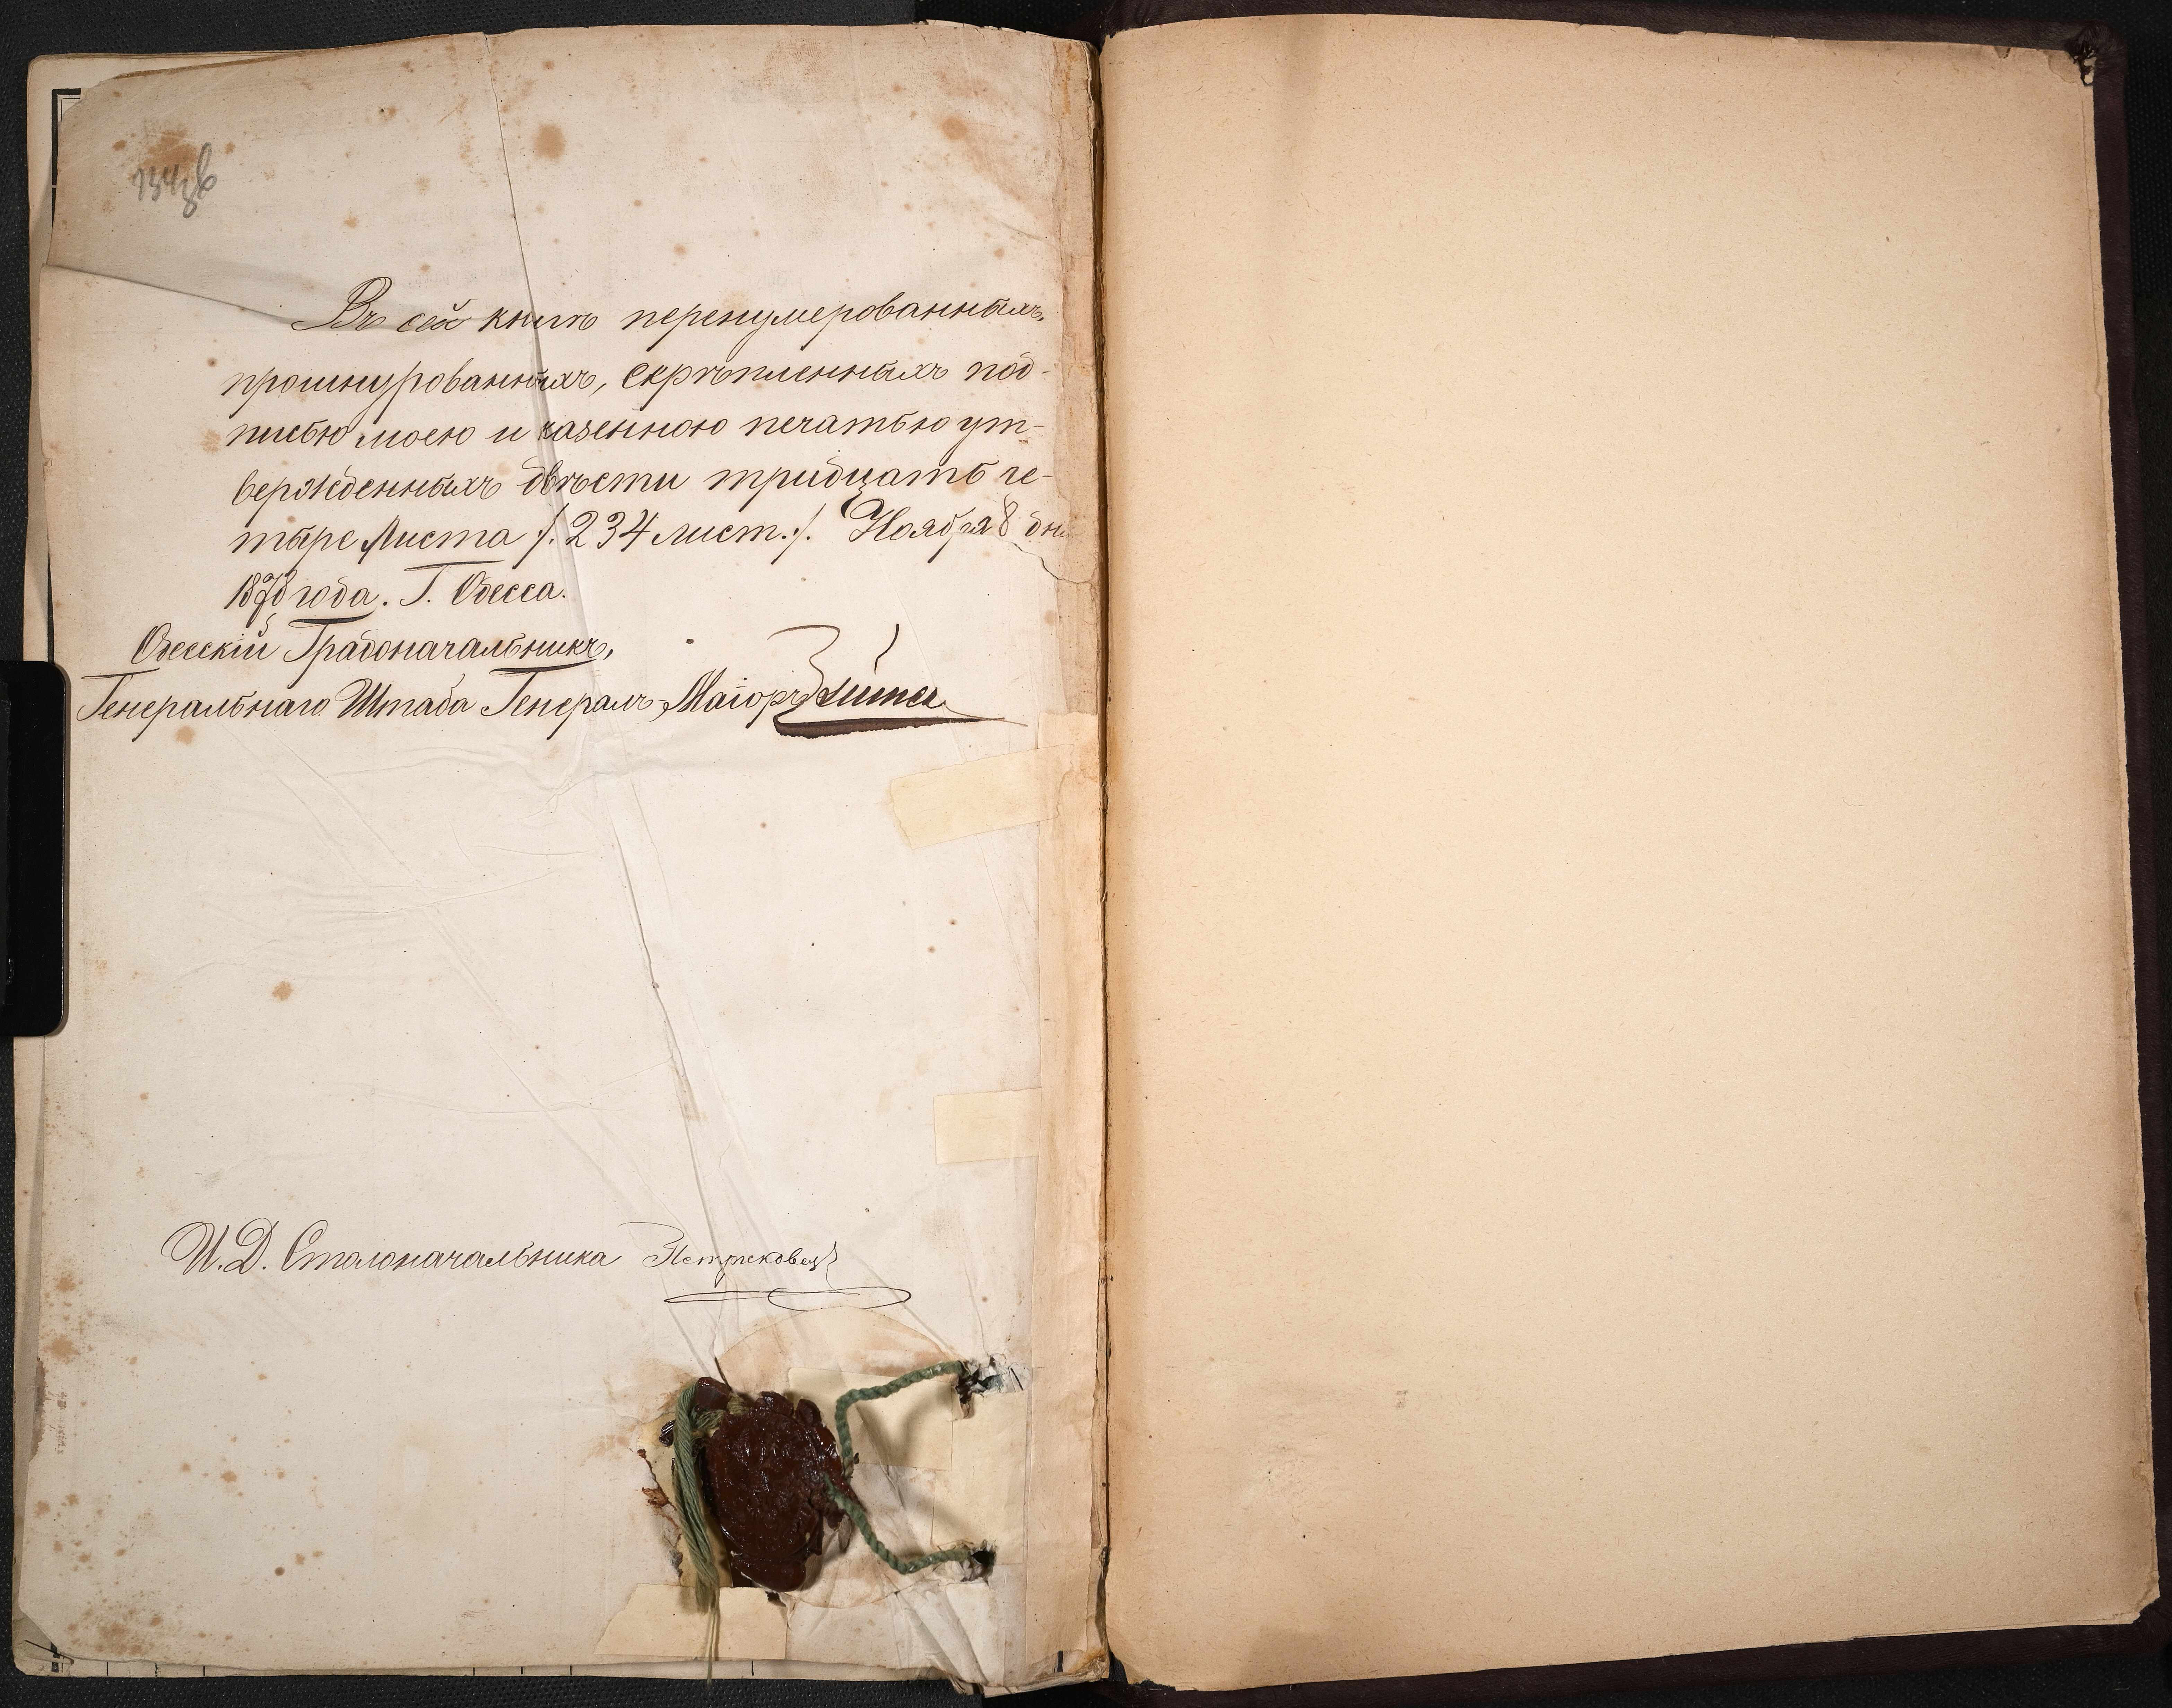 Въ сей книгѣ перенумерованныхъ,
прошнурованныхъ, скрѣпленныхъ под-
писью моею и казенною печатью ут-
вержденныхъ двѣсти тридцать че-
тыре листа /. 234 лист. /. Ноября 8 дня
1878 года. Г. Одесса.
Одесскій Градоначальникъ,
Генеральнаго Штаба Генералъ-Маіоръ
И. Д. Столоначальника